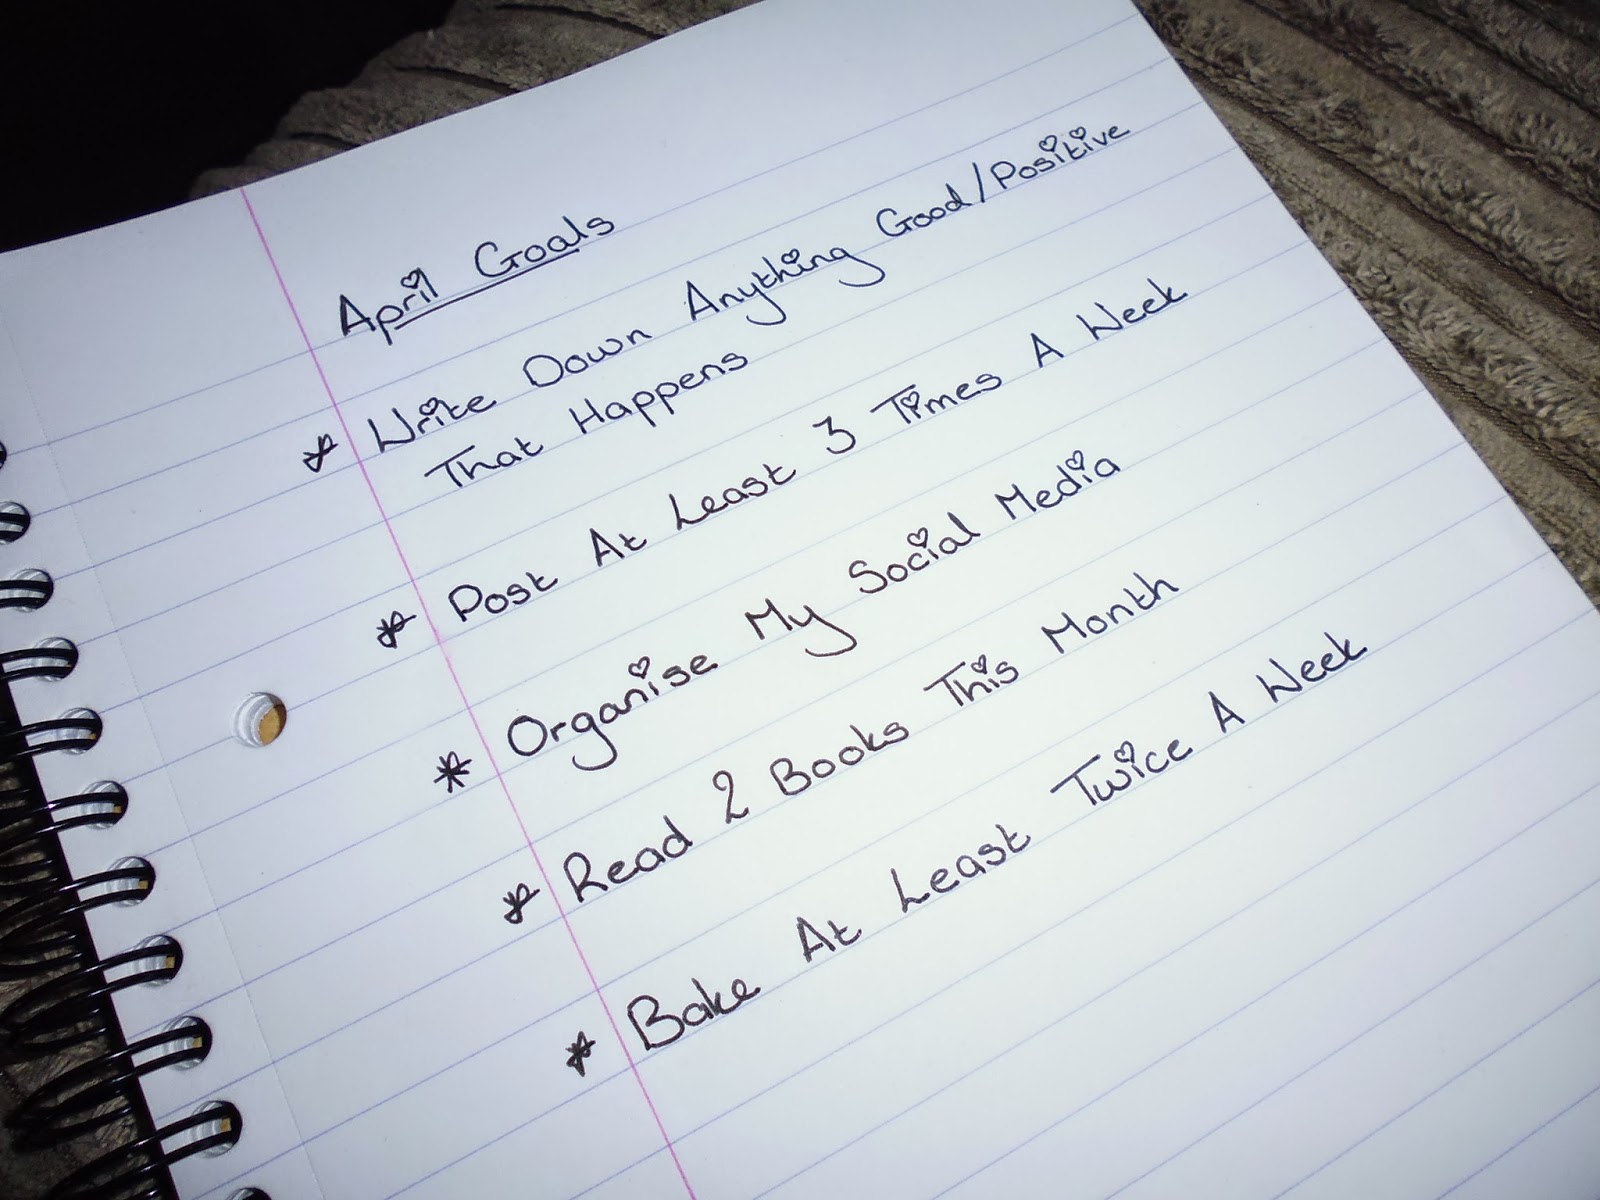 April Goals
* Write Down Anything Good/Positive
That Happens
* Post At Least 3 Times A Week
* Organise My Social Media
* Read 2 Books This Month
* Bake At Least Twice A Week